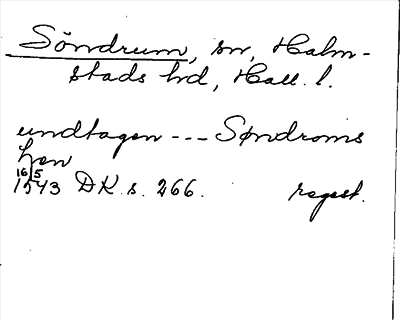 Söndrum, sn, Halm-
stads hd, Hall. l.
undtagen --- Søndroms
hen
16/5
1543 DK. s. 266. regest.